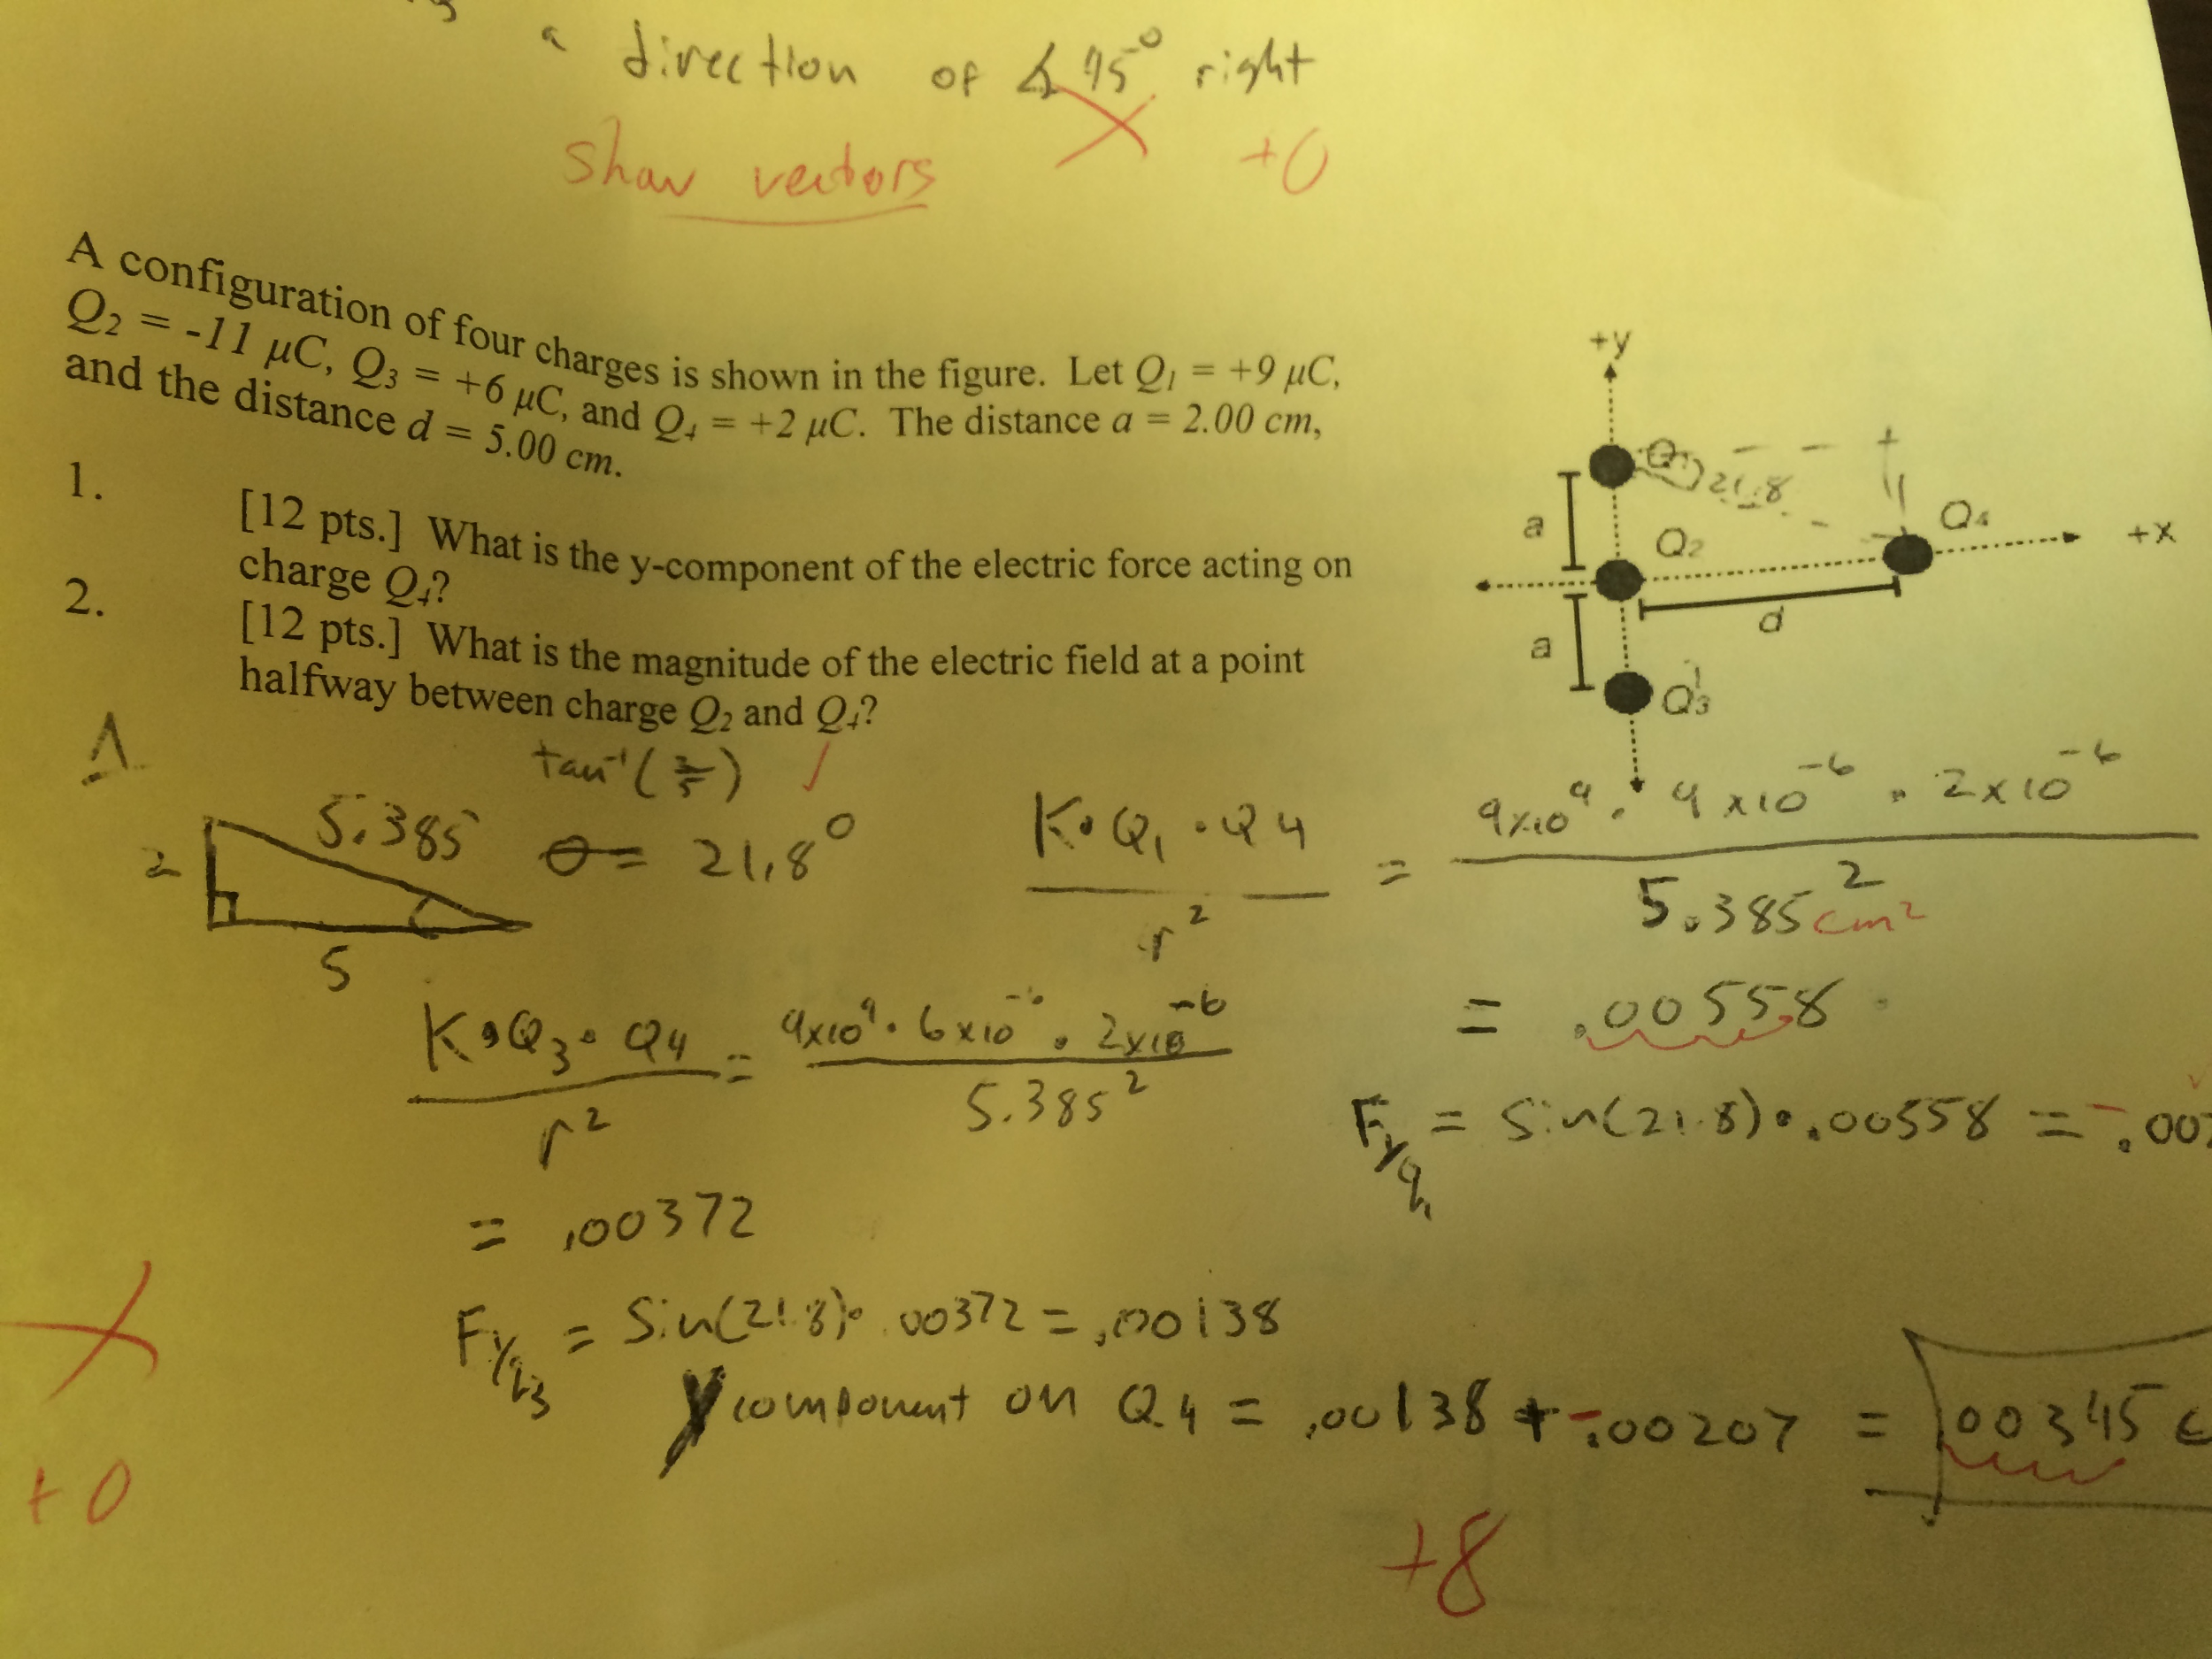 a direction of ∡ 45° right
Show vectors +0
A configuration of four charges is shown in the figure. Let Q1 = +9 μC,
Q2 = -11 μC, Q3 = +6 μC, and Q4 = +2 μC. The distance a = 2.00 cm,
and the distance d = 5.00 cm.
1. [12 pts.] What is the y-component of the electric force acting on
charge Q4?
2. [12 pts.] What is the magnitude of the electric field at a point
halfway between charge Q2 and Q4?
+y
Q1 21.8
a Q2 Q4 +x
d
a
Q3
1.
tan⁻¹(2/5) ✓
5.385 θ = 21.8°
2
5
K·Q1·Q4 / r² = 9x10⁹ · 9x10⁻⁶ · 2x10⁻⁶ / 5.385² cm²
= .00558
K·Q3·Q4 / r² = 9x10⁹ · 6x10⁻⁶ · 2x10⁻⁶ / 5.385²
Fyq1 = Sin(21.8)·.00558 = -.00
= .00372
Fyq3 = Sin(21.8)·.00372 = .00138
y component on Q4 = .00138 + -.00207 = .00345
+0
+8